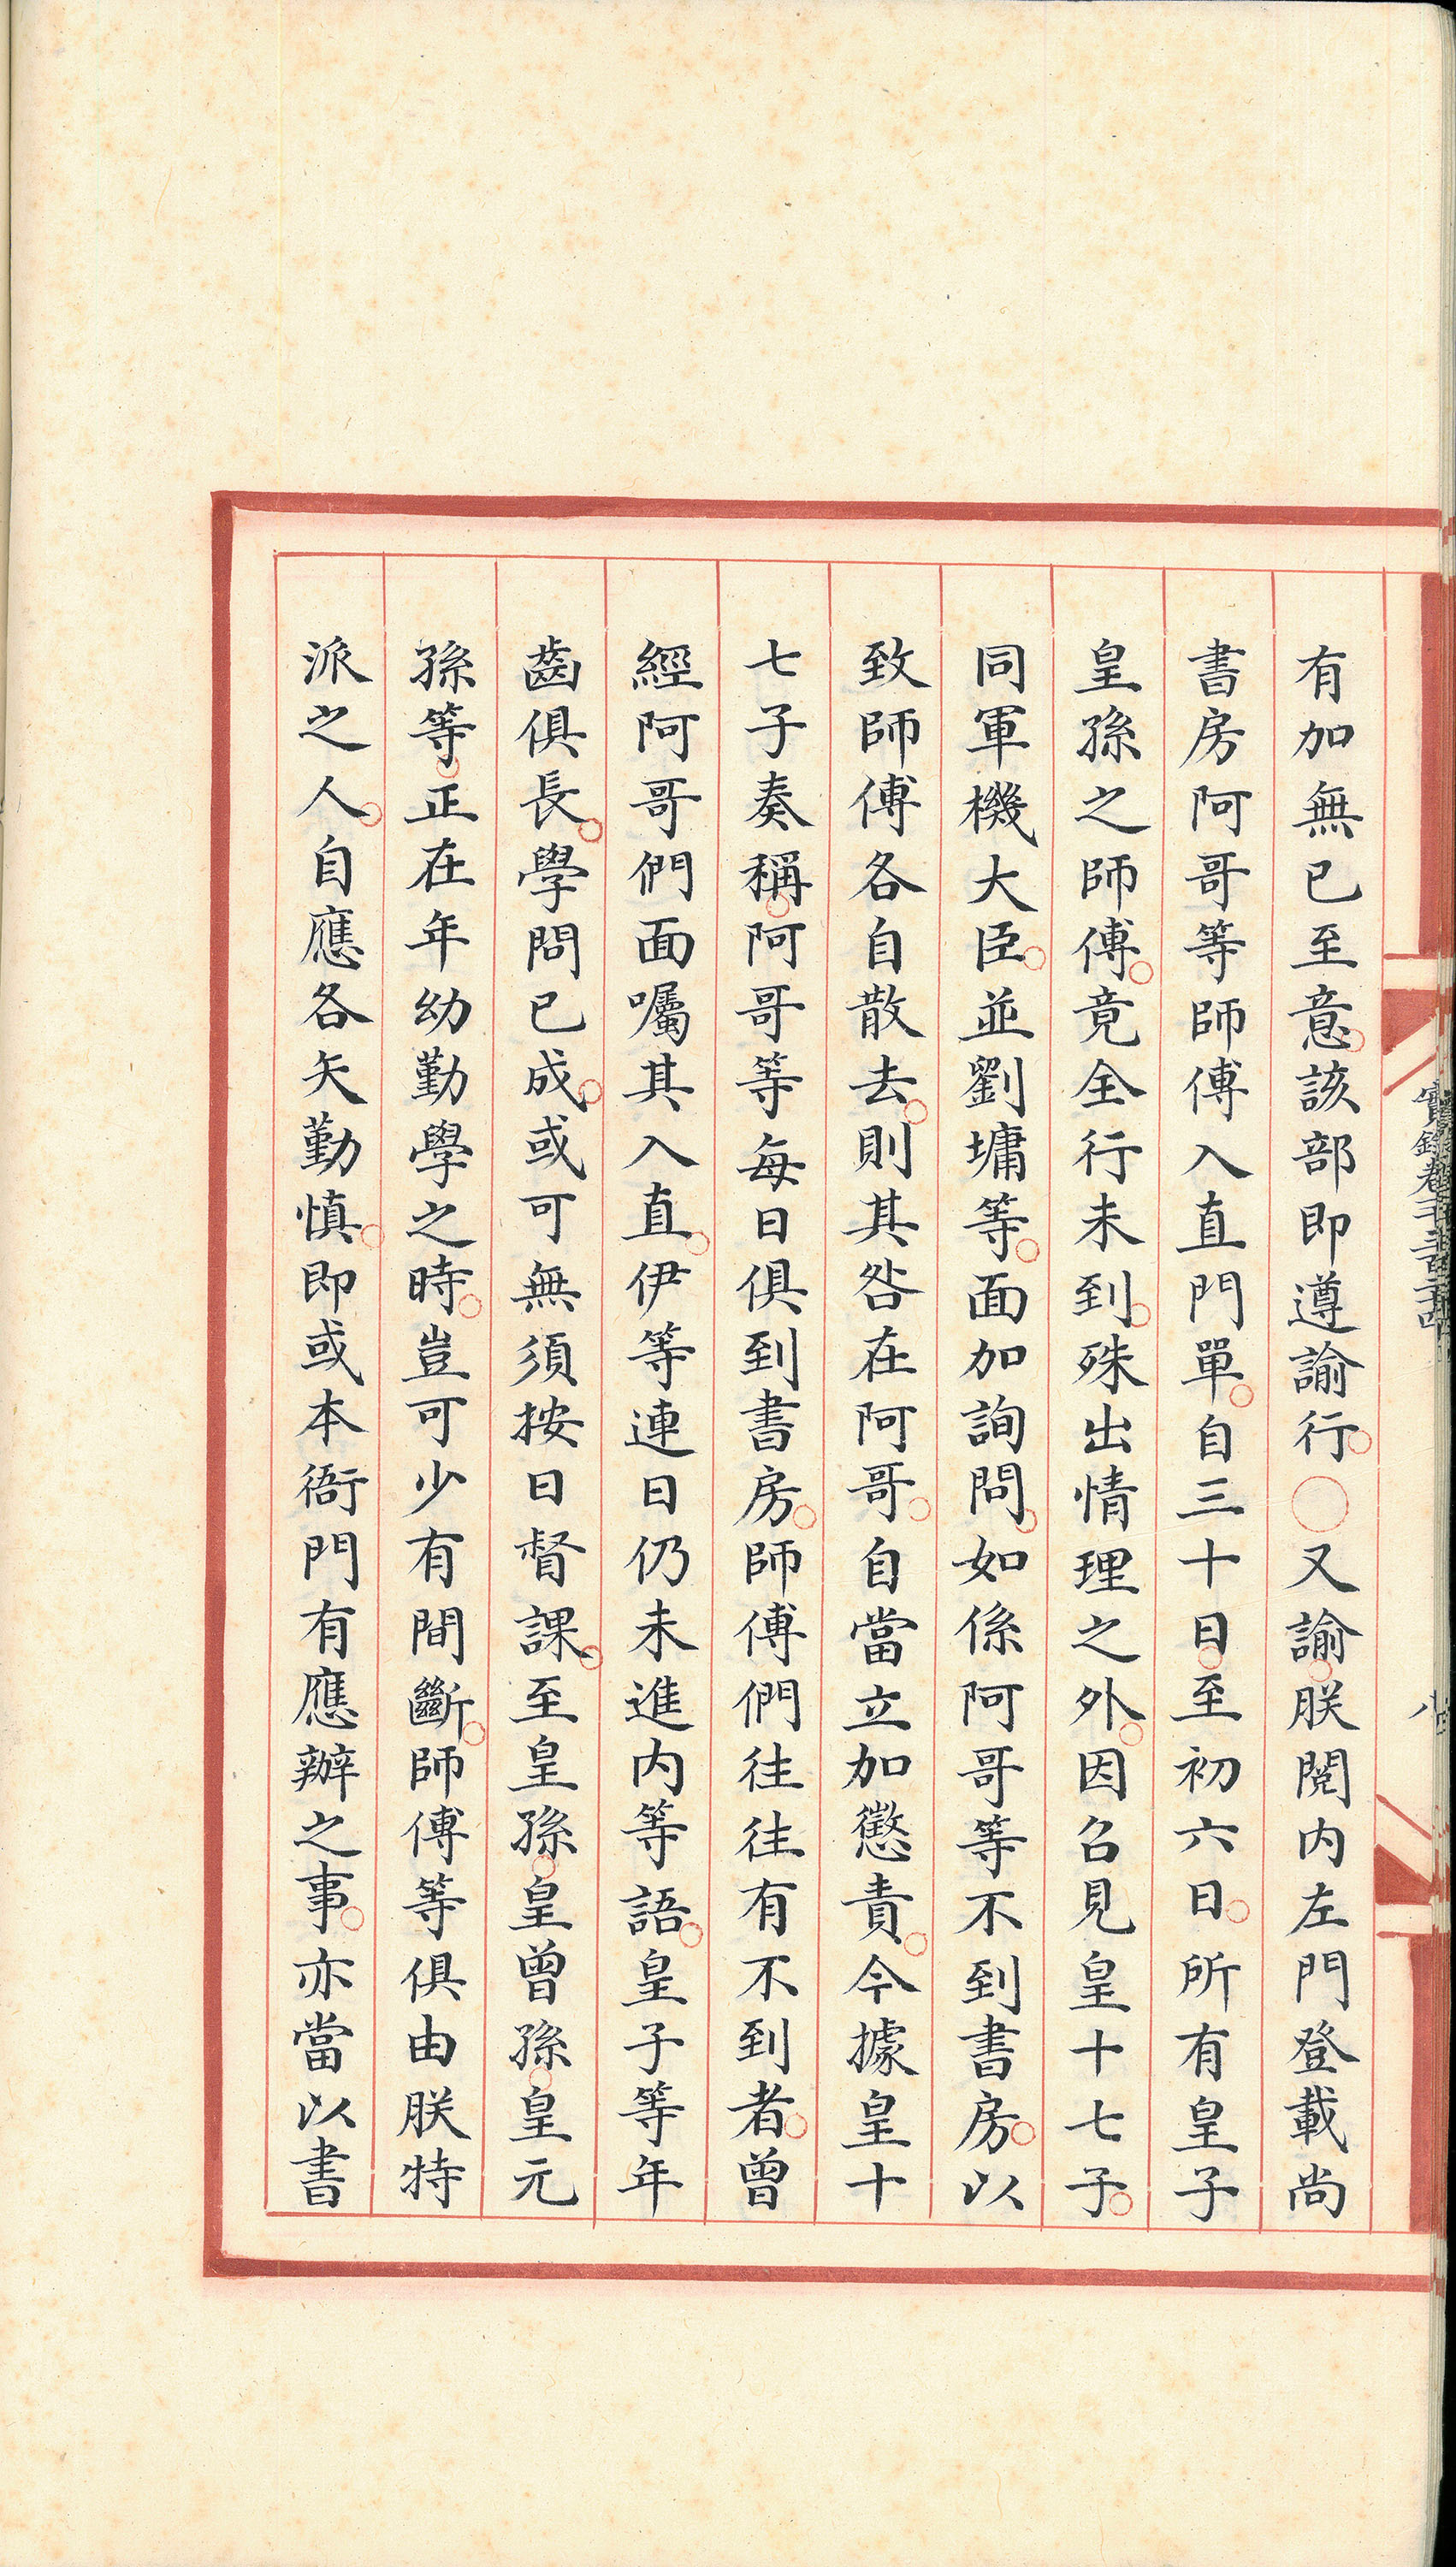 有加無已至意。該部即遵諭行。○又諭。朕閱內左門登載尚
書房阿哥等師傅入直門單。自三十日。至初六日。所有皇子
皇孫之師傅。竟全行未到。殊出情理之外。因召見皇十七子。
同軍機大臣。並劉墉等。面加詢問。如係阿哥等不到書房。以
致師傅各自散去。則其咎在阿哥。自當立加懲責。今據皇十
七子奏稱。阿哥等每日俱到書房。師傅們往往有不到者。曾
經阿哥們面囑其入直。伊等連日仍未進內等語。皇子等年
齒俱長。學問已成。或可無須按日督課。至皇孫。皇曾孫。皇元
孫等。正在年幼勤學之時。豈可少有間斷。師傅等俱由朕特
派之人。自應各矢勤慎。即或本衙門有應辦之事。亦當以書